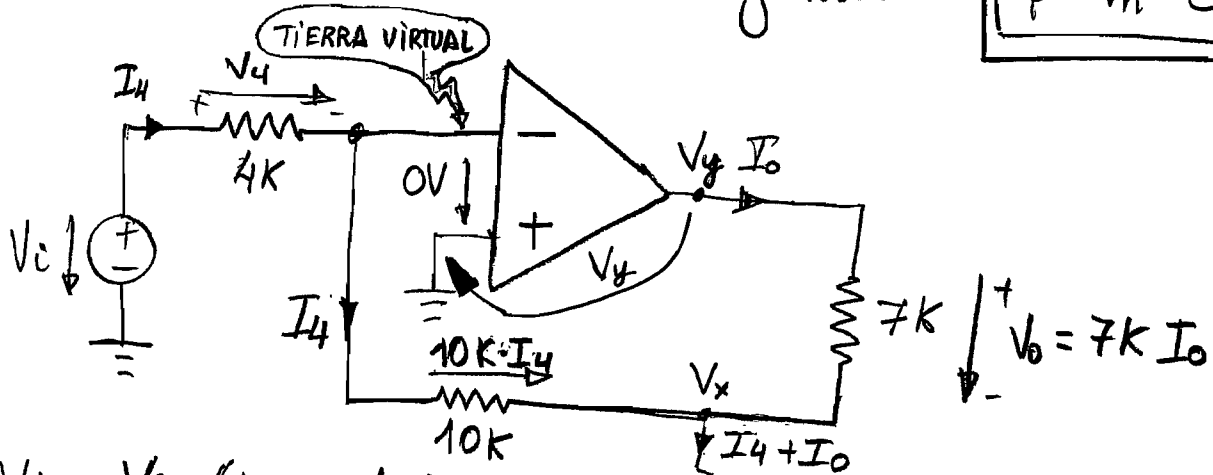 TIERRA VIRTUAL
I4
+ V4 -
4K
0V
-
+
Vy I0
Vy
Vi
+
-
I4
10K·I4
10K
Vx
I4 + I0
7K
+ V0 = 7K I0
-